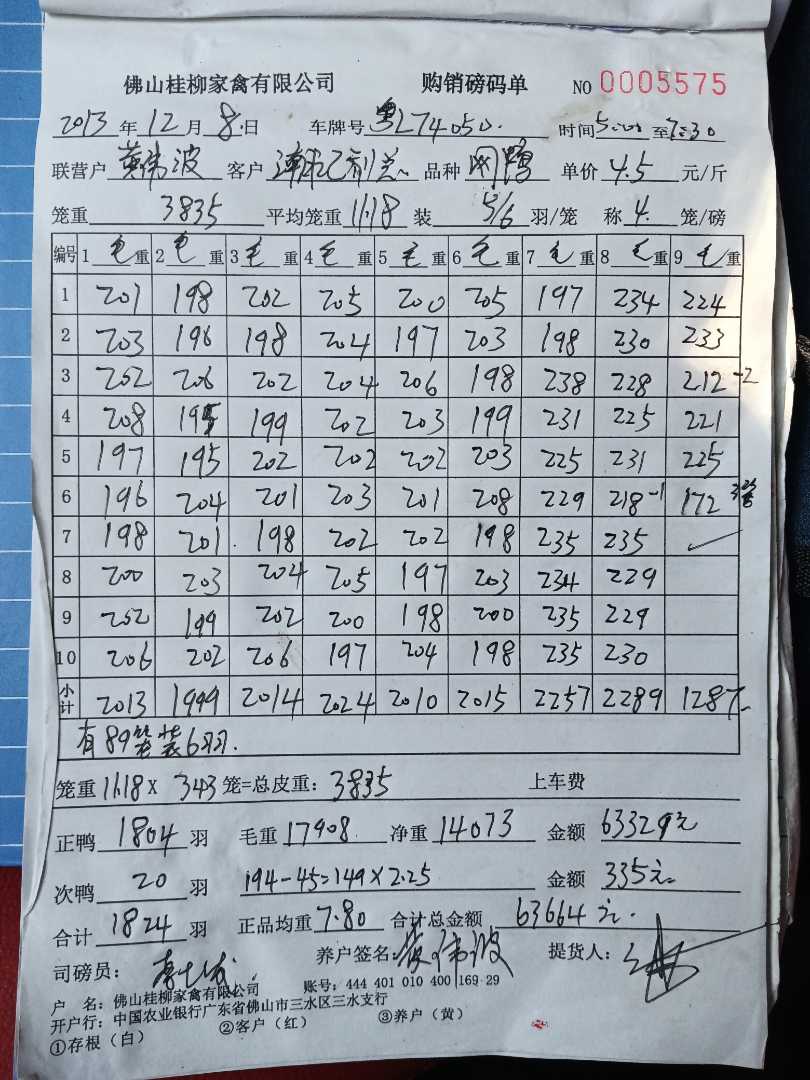 佛山桂柳家禽有限公司 购销磅码单 NO 0005575
2013年12月8日 车牌号粤L74050. 时间5:00至7:30
联营户 黄伟波 客户 品种 单价 4.5 元/斤
笼重 3835 平均笼重 11.18 装 5/6 羽/笼 称 4. 笼/磅
编号 1 毛重 2 毛重 3 毛重 4 毛重 5 毛重 6 毛重 7 毛重 8 毛重 9 毛重
1 201 198 202 205 200 205 197 234 224
2 203 196 198 204 197 203 198 230 233
3 202 206 202 204 206 198 238 228 212 -2
4 208 195 199 202 203 199 231 225 221
5 197 195 202 202 202 203 225 231 225
6 196 204 201 203 201 208 229 218 -1 172
7 198 201 198 202 202 198 235 235
8 200 203 204 205 197 203 234 229
9 202 199 202 200 198 200 235 229
10 206 202 206 197 204 198 235 230
小计 2013 1999 2014 2024 2010 2015 2257 2289 1287
有89笼装6羽.
笼重 11.18 X 343 笼=总皮重: 3835 上车费
正鸭 1804 羽 毛重 17908 净重 14073 金额 63329元
次鸭 20 羽 194-45=149×2.25 金额 335元
合计 1824 羽 正品均重 7.80 合计总金额 63664元.
司磅员: 养户签名: 黄伟波 提货人:
户 名: 佛山桂柳家禽有限公司 账号: 444 401 010 400 169 29
开户行: 中国农业银行广东省佛山市三水区三水支行
①存根(白) ②客户(红) ③养户(黄)